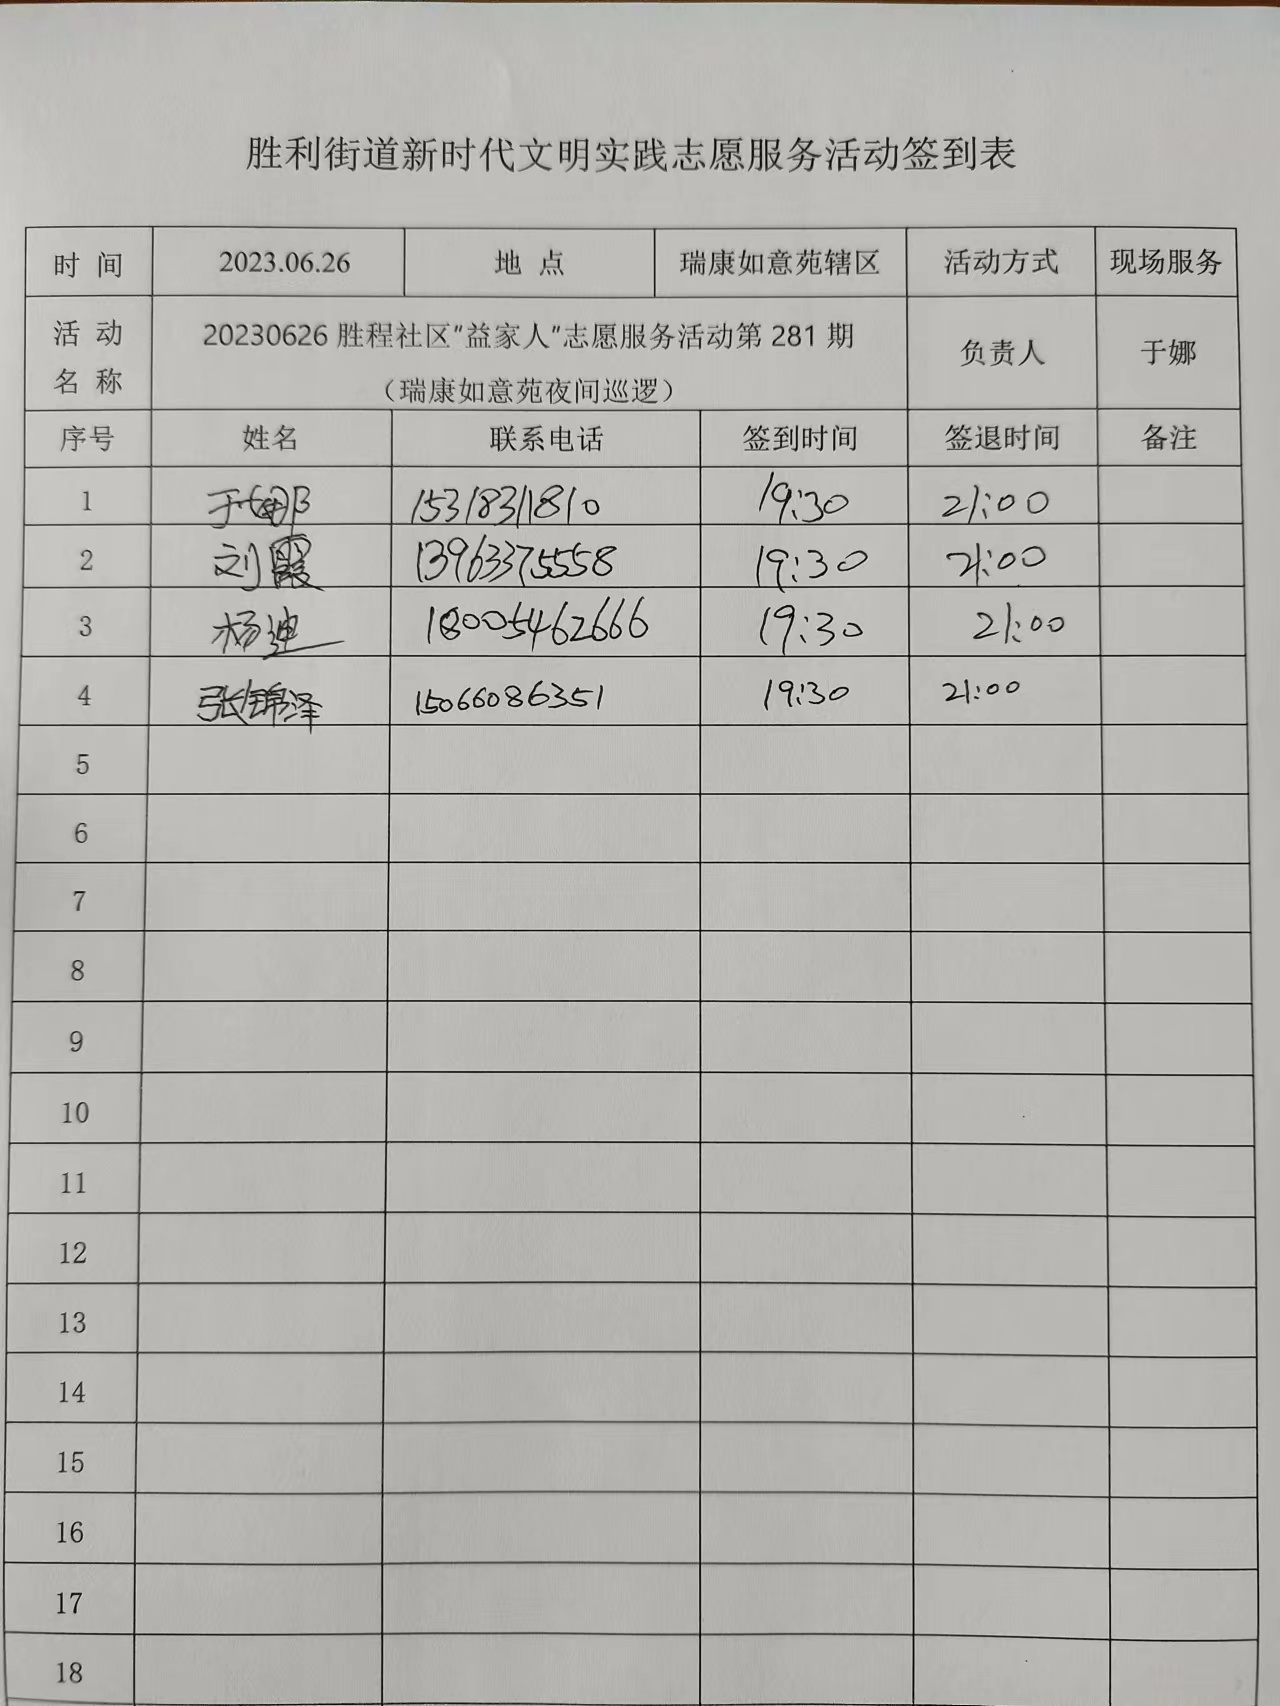 胜利街道新时代文明实践志愿服务活动签到表
时 间 2023.06.26 地 点 瑞康如意苑辖区 活动方式 现场服务
活 动 名 称 20230626 胜程社区"益家人"志愿服务活动第 281 期 (瑞康如意苑夜间巡逻) 负责人 于娜
序号 姓名 联系电话 签到时间 签退时间 备注
1 于娜 15318311810 19:30 21:00
2 刘霞 13963375558 19:30 21:00
3 杨迪 18005462666 19:30 21:00
4 张锦泽 15066086351 19:30 21:00
5
6
7
8
9
10
11
12
13
14
15
16
17
18